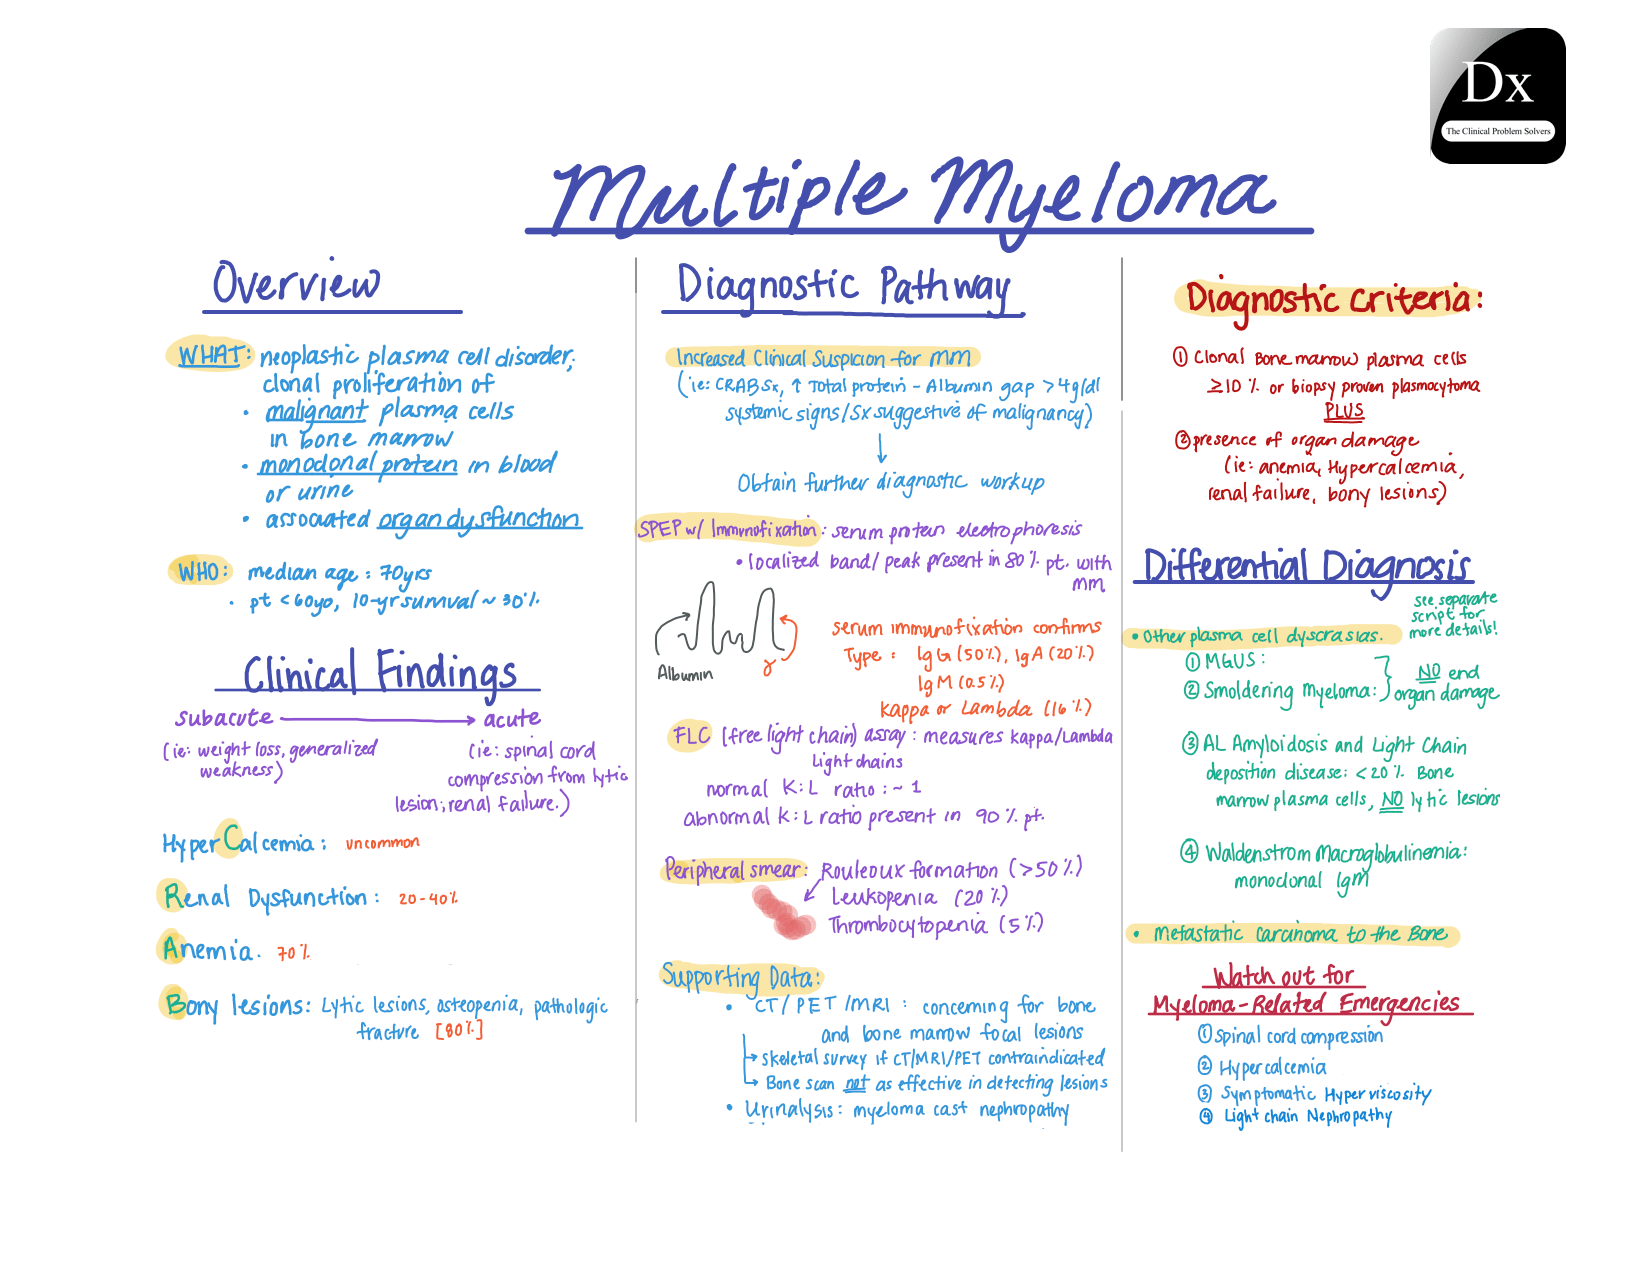 Dx
The Clinical Problem Solvers
Multiple Myeloma
Overview
WHAT: neoplastic plasma cell disorder;
clonal proliferation of
• malignant plasma cells
in bone marrow
• monoclonal protein in blood
or urine
• associated organ dysfunction
WHO: median age: 70yrs
• pt < 60yo, 10-yr survival ~ 30%.
Clinical Findings
subacute → acute
(ie: weight loss, generalized
weakness)
(ie: spinal cord
compression from lytic
lesion; renal failure.)
HyperCalcemia: uncommon
Renal Dysfunction: 20-40%
Anemia. 70%
Bony lesions: Lytic lesions, osteopenia, pathologic
fracture [80%]
Diagnostic Pathway
Increased Clinical Suspicion for MM
(ie: CRAB Sx, ↑ Total protein - Albumin gap > 4g/dl
systemic signs/Sx suggestive of malignancy)
↓
Obtain further diagnostic workup
SPEP w/ Immunofixation: serum protein electrophoresis
• localized band/peak present in 80% pt. with
mm
Albumin
γ
serum immunofixation confirms
Type: IgG (50%), IgA (20%)
IgM (0.5%)
Kappa or Lambda (16%)
FLC (free light chain) assay: measures kappa/Lambda
Light chains
normal K:L ratio: ~ 1
abnormal K:L ratio present in 90% pt.
Peripheral smear: Rouleoux formation (>50%)
Leukopenia (20%)
Thrombocytopenia (5%)
Supporting Data:
• CT/PET/MRI: concerning for bone
and bone marrow focal lesions
→ Skeletal survey if CT/MRI/PET contraindicated
→ Bone scan not as effective in detecting lesions
• Urinalysis: myeloma cast nephropathy
Diagnostic Criteria:
① Clonal Bone marrow plasma cells
≥10% or biopsy proven plasmacytoma
PLUS
② presence of organ damage
(ie: anemia, Hypercalcemia,
renal failure, bony lesions)
Differential Diagnosis
see separate
script for
more details!
• Other plasma cell dyscrasias.
① MGUS:
② Smoldering Myeloma:
NO end
organ damage
③ AL Amyloidosis and Light Chain
deposition disease: < 20% Bone
marrow plasma cells, NO lytic lesions
④ Waldenstrom Macroglobulinemia:
monoclonal IgM
• Metastatic Carcinoma to the Bone
Watch out for
Myeloma-Related Emergencies
① Spinal cord compression
② Hypercalcemia
③ Symptomatic Hyperviscosity
④ Light chain Nephropathy